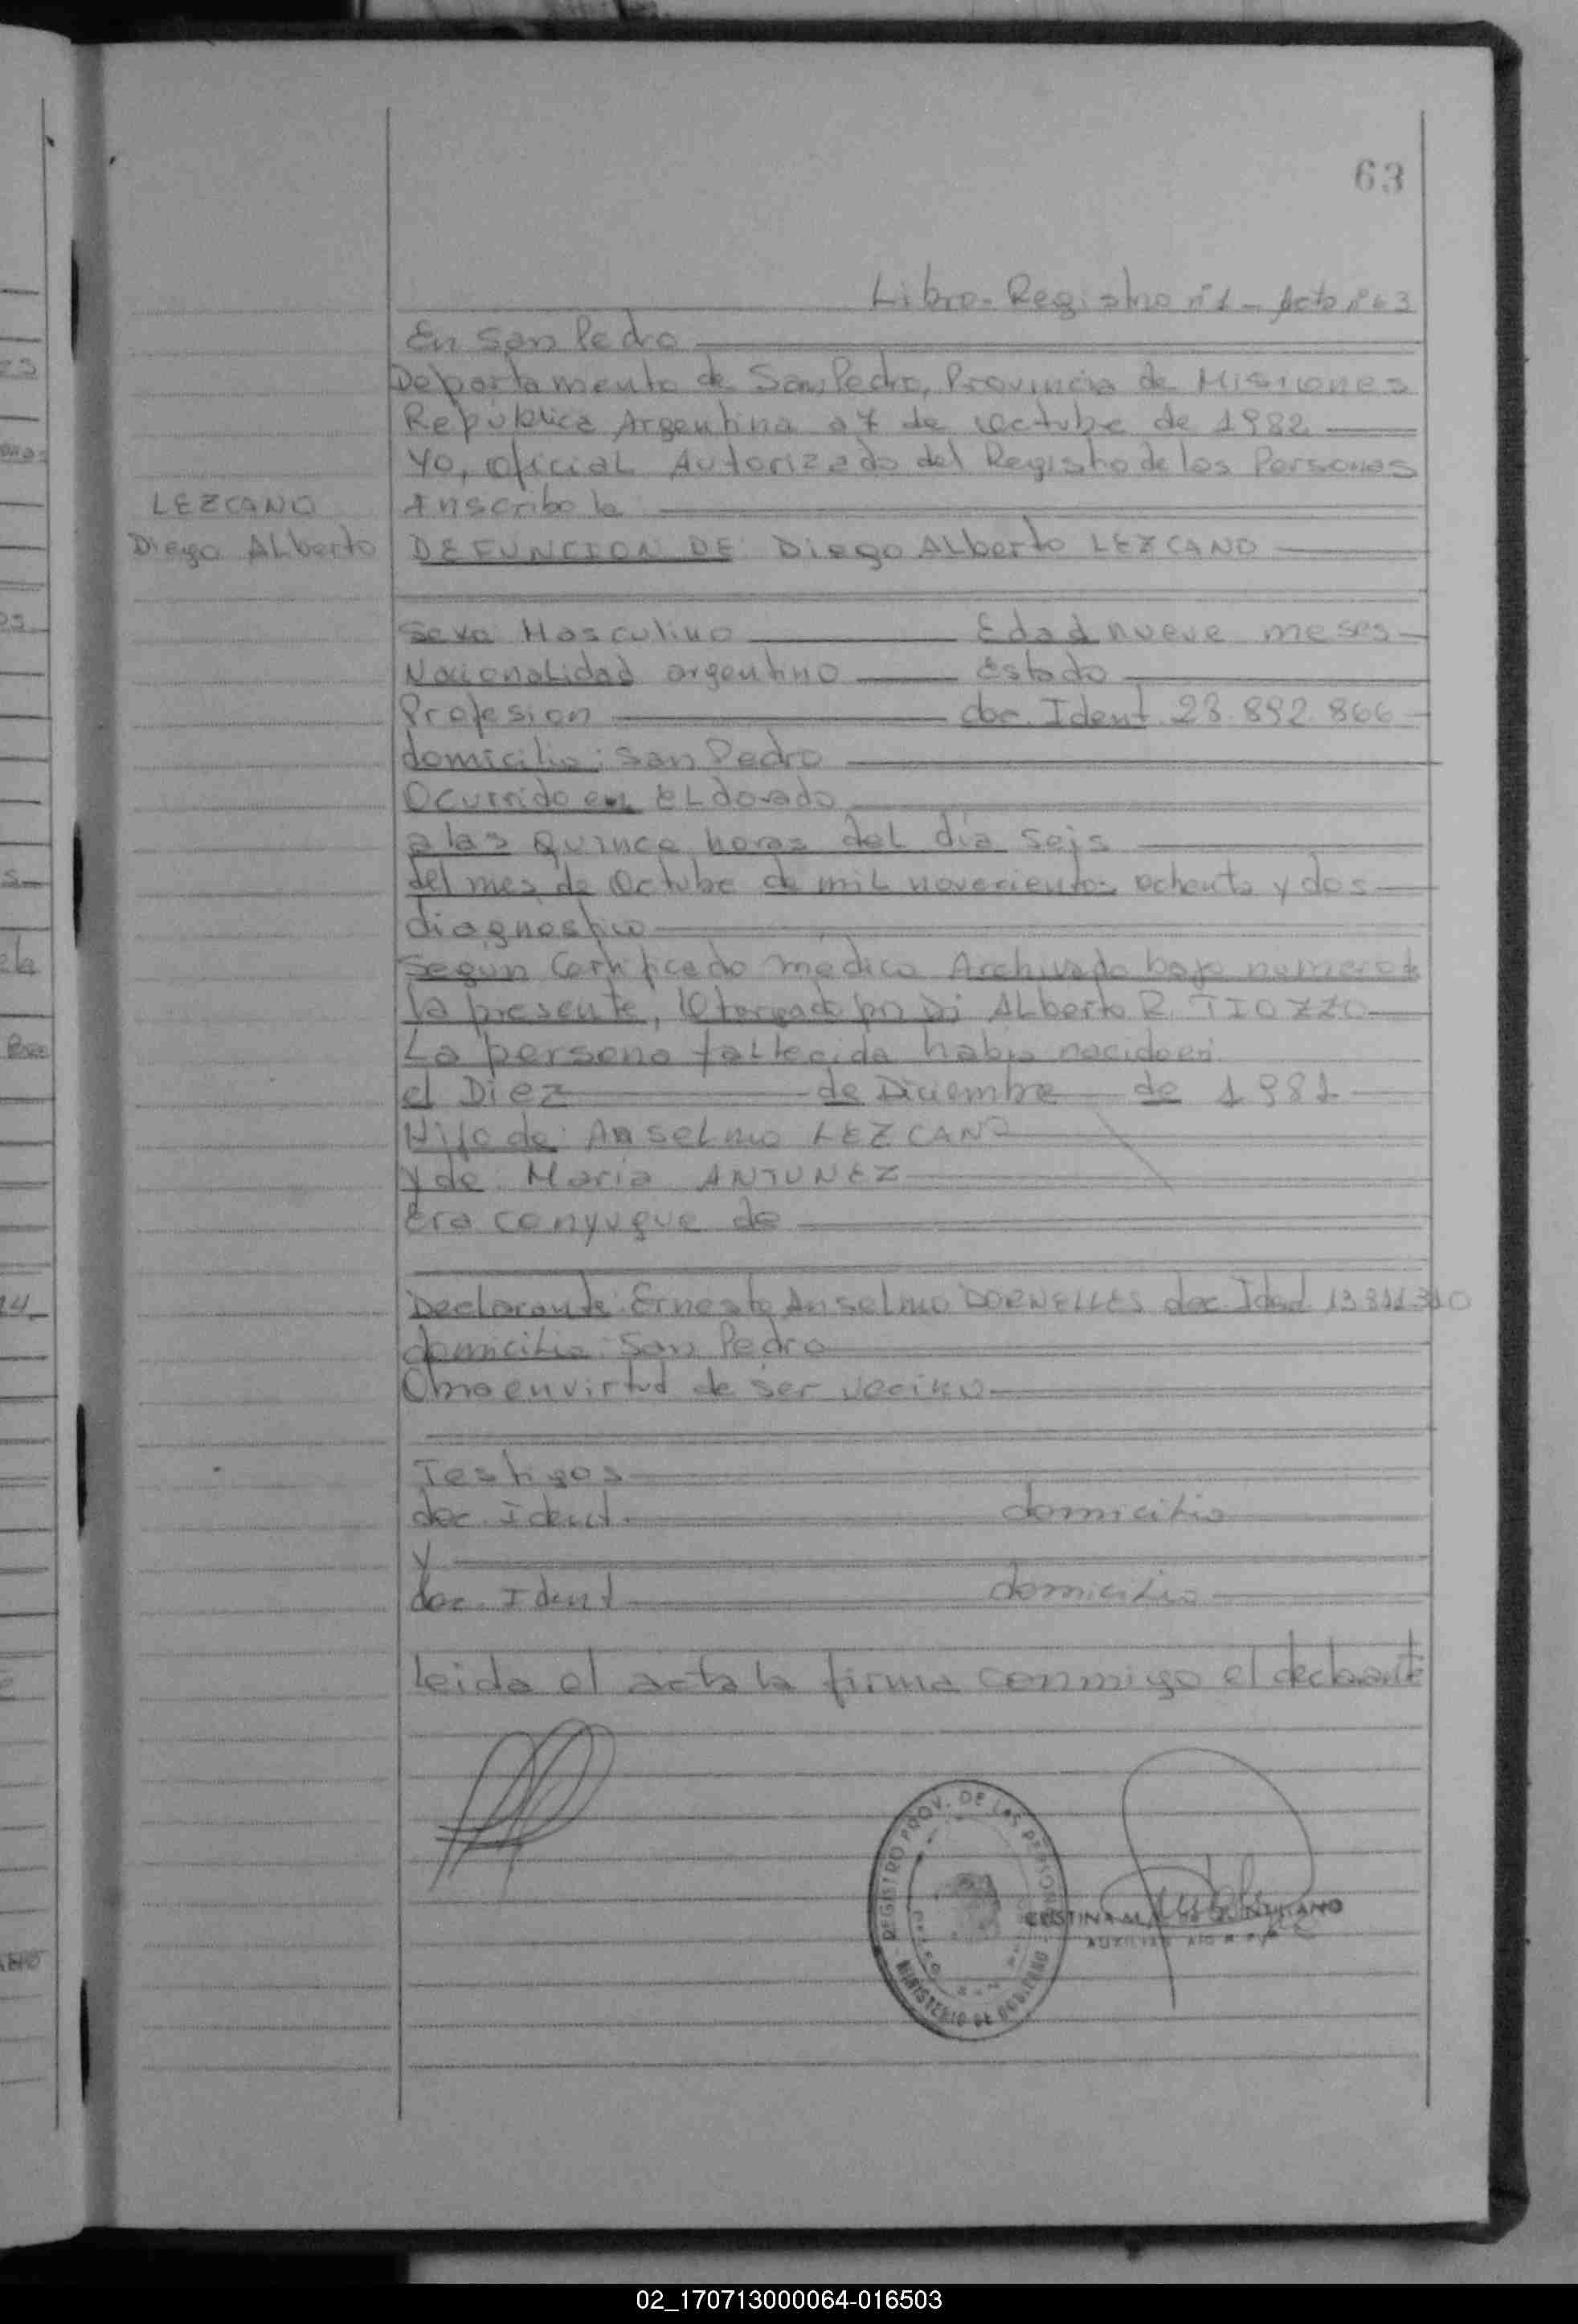 63
Libro-Registro n°1 - Acta n°63
En San Pedro
Departamento de San Pedro, Provincia de Misiones
República Argentina a 7 de Octubre de 1982
Yo, oficial Autorizado del Registro de las Personas
LEZCANO
Diego Alberto
Inscribo la
DEFUNCION DE: Diego Alberto LEZCANO
Sexo Masculino Edad nueve meses
Nacionalidad argentino Estado
Profesion doc. Ident 23.892.866
domicilio: San Pedro
Ocurrido en Eldorado
a las Quince horas del dia seis
del mes de Octube de mil novecientos ochenta y dos
diagnostico
Segun Certificado medico Archivado bajo numero de
la presente, Otorgado por Dr Alberto R. TIOZZO
La persona fallecida habia nacido en
el Diez de Diciembre de 1981
Hijo de: Anselmo LEZCANO
y de: Maria ANTUNEZ
Era conyugue de
Declarante: Ernesto Anselmo DORNELLES doc. Idad
domicilio: San Pedro
Obra en virtud de ser vecino
Testigos
doc. Ident. domicilio
y
doc. Ident domicilio
leida el acta la firma conmigo el declarante
REGISTRO PROV. DE LAS PERSONAS
MINISTERIO DE GOBIERNO
CRISTINA
AUXILIAR
02_170713000064-016503